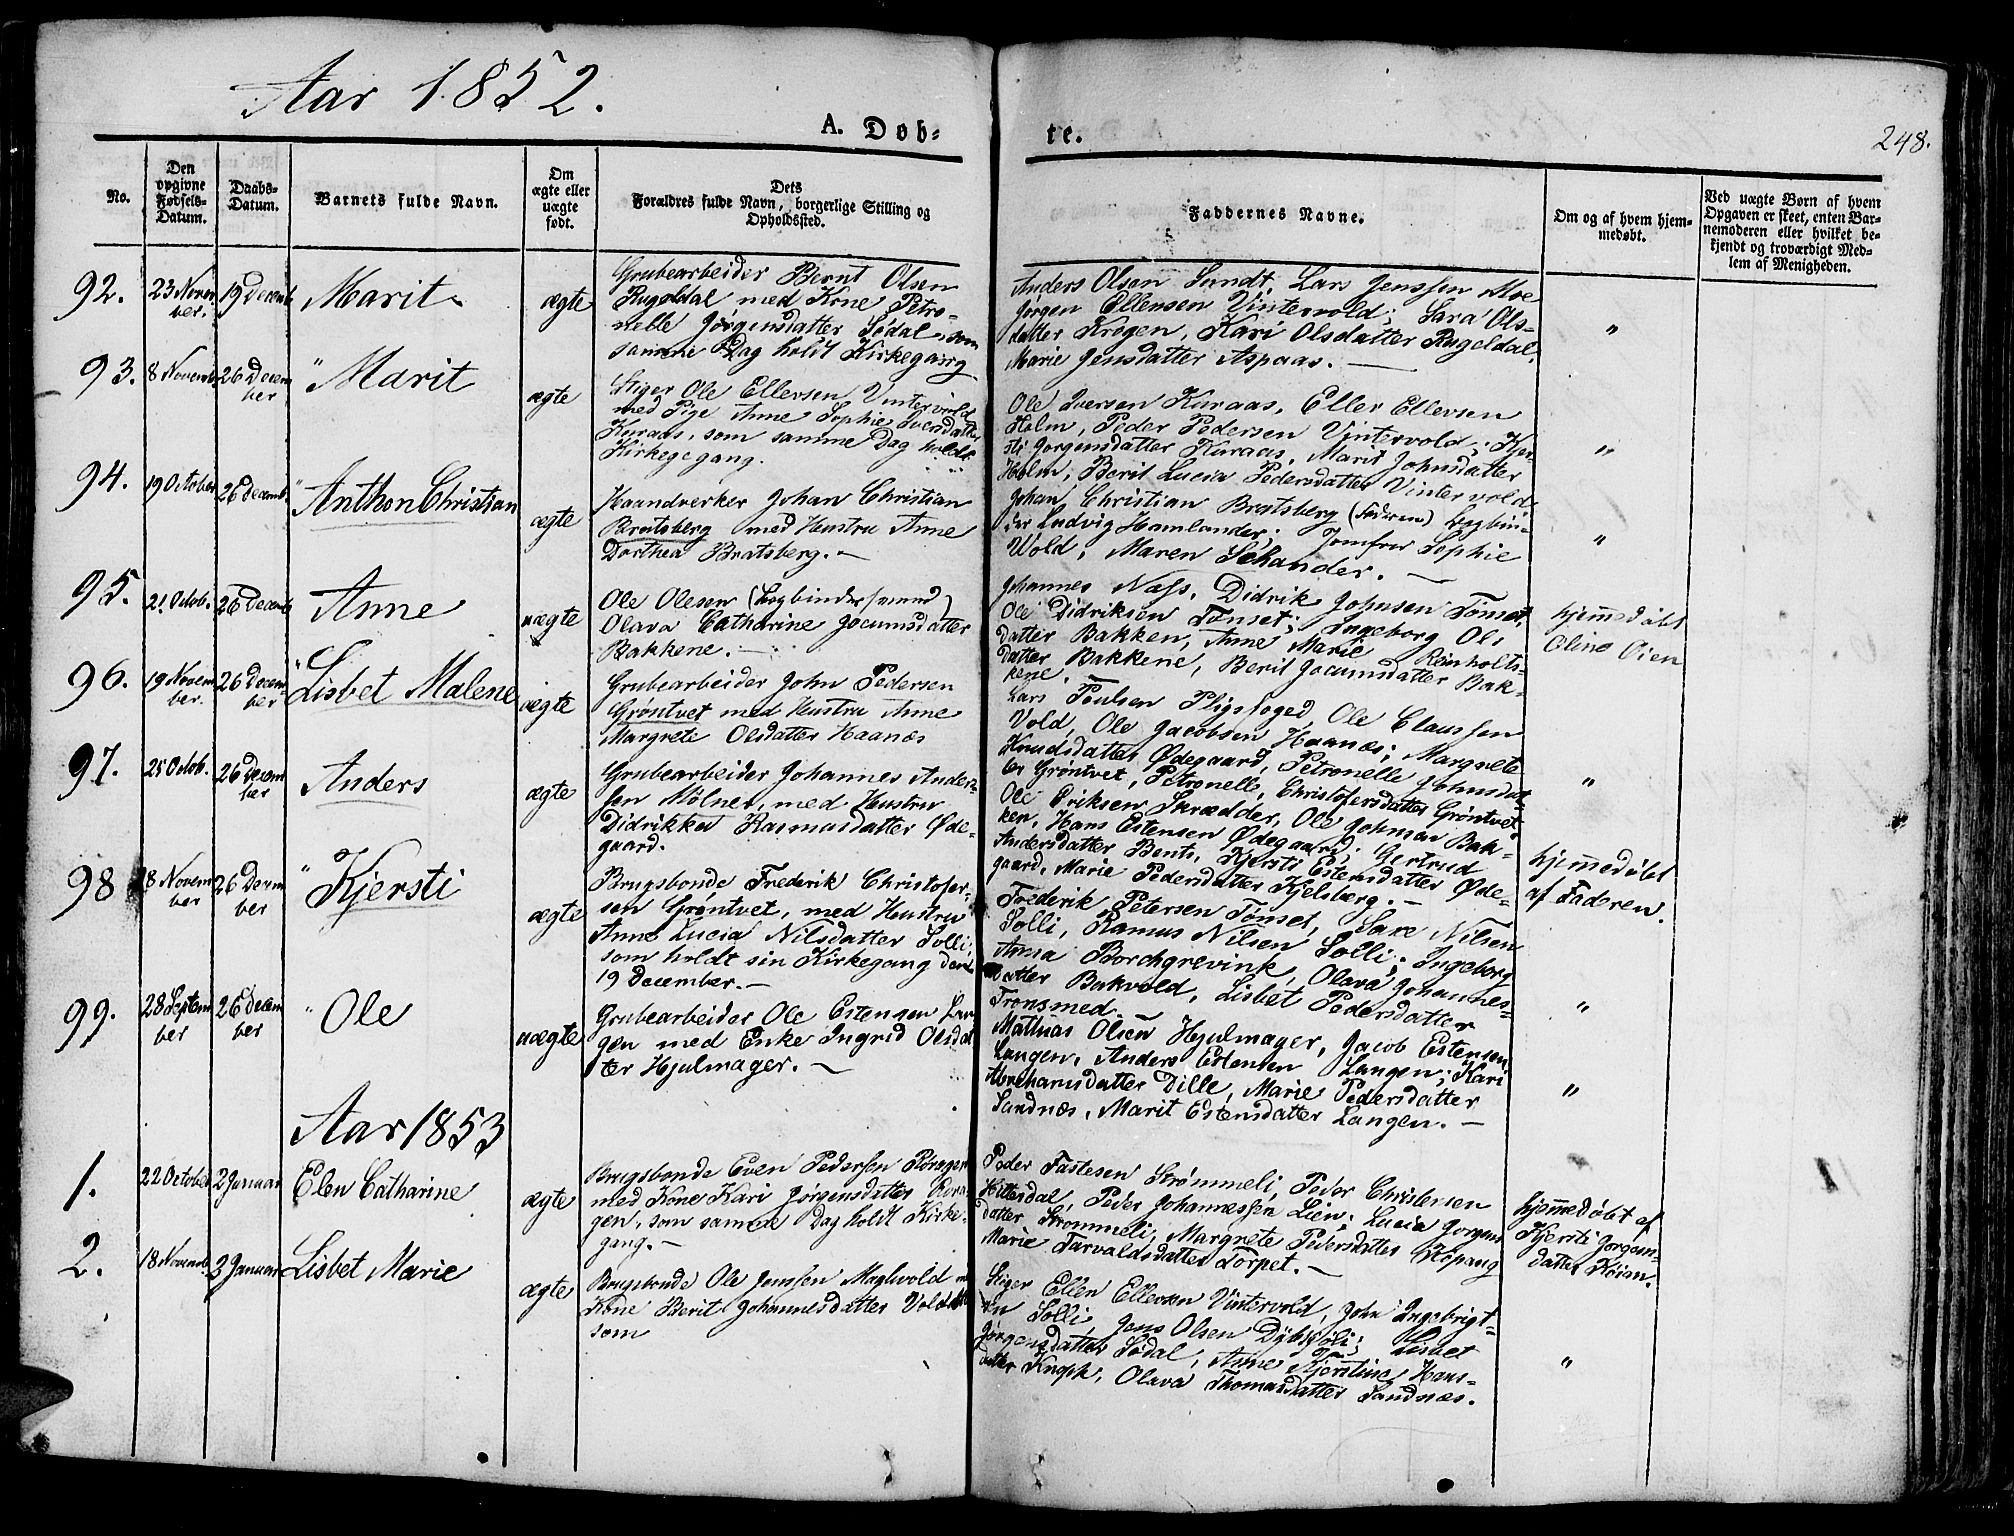 Aar 1852.
A. Døb-
te.
248.
No.
Den opgivne Fødsels-Datum.
Daabs-Datum.
Barnets fulde Navn.
Om ægte eller uægte født.
Dets Forældres fulde Navn, borgerlige Stilling og Opholdssted.
Faddernes Navne.
Om og af hvem hjemmedøbt.
Ved uægte Børn af hvem Opgaven er skeet, enten Barnemoderen eller hvilket bekjendt og troværdigt Medlem af Menigheden.
92.
23 November.
19 Decemb
Marit
ægte
Grubearbeider Bernt Olsen
Rugeldal med Kone Petro-
nelle Jørgensdatter Sødal, som
samme Dag holdt Kirkegang
Anders Olsen Sundt, Lars Jenssen Moe
Jørgen Ellensen Vintervold; Sara Ols-
datter Krogen, Kari Olsdatter Rugeldal,
Marie Jensdatter Aspaas. —
"
93.
8 Novemb
26 December
" Marit
ægte
Stiger Ole Ellersen Vintervold
med Pige Anne Sophie Iversdatter
Kuraas, som samme Dag holdt
Kirkegegang.
Ole Iversen Kuraas, Eller Ellersen
Holm, Peder Pedersen Vintervold; Kjer-
sti Jorgensdatter Kuraas, Marit Johnsdatter
Holm, Berit Lucia Pedersdatter Vintervold
"
94.
19 October
26 Decemb.
" Anthon Christian
ægte
Haandverker Johan Christian
Bratsberg med Hustru Anne
Dorthea Bratsberg. —
Johan Christian Bratsberg (Faderen) Bogbin-
der Ludvig Hamlander; Jomfru Sophie
Wold, Maren Schander. —
"
95.
21 Octob.
26 Decemb
Anne
uægte
Ole Olesen (Bogbindersvend)
Olava Catharine Jocumsdatter
Bakkene. —
Johannes Næss, Didrik Johnsen Tønset,
Ole Didriksen Tønset; Ingeborg Ols
datter Bakken, Anne Marie Reinholts-
datter Bakkene, Berit Jocumsdatter Bak-
kene
hjemmedøbt
Oline Oien
96.
19 November.
26 December
" Lisbet Malene
ægte
Grubearbeider John Pedersen
Grøntvet med Hustru Anne
Margrete Olsdatter Haanæs
Lars Poulsen Pligsfoged, Ole Claussen
Vold, Ole Jacobsen Haanæs; Margrete
Knudsdatter Ødegaard, Petronelle Johnsdat-
ter Grøntvet, Petronelle Christofersdatter Grøntvet
"
97.
25 Octob.
26 December
Anders
ægte
Grubearbeider Johannes Ander-
sen Mølner, med Hustru
Didrikka Rasmusdatter Øde-
gaard.
Ole Eriksen Skrædder, Ole Johnsen Bak-
ken, Hans Estensen Ødegaard; Gertrud
Andersdatter Bents, Kjersti Estensdatter Øde-
gaard, Marie Pedersdatter Kjelsberg. —
hjemmedøbt
af Faderen.
98
8 November
26 December
" Kjersti
ægte
Brugsbonde Frederik Christofer-
sen Grøntvet, med Hustru
Anne Lucia Nilsdatter Solli,
som holdt sin Kirkegang den
19 December. —
Frederik Petersen Tønset, Sare Nilsen
Solli, Ramus Nilsen Solli; Ingeborg
Anna Borchgrevink, Olava Johannes-
datter Bakvold, Lisbet Pedersdatter
Tronsmed.
"
99.
28 September
26 December
" Ole
uægte
Grubearbeider Ole Estensen Lan-
gen med Enke Ingrid Olsdat
ter Hjulmager. —
Mathias Olsen Hjulmager, Jacob Estensen
Langen, Anders Estensen Langen; Kari
Abrahamsdatter Dille, Marie Pedersdatter
Sandnæs, Marit Estensdatter Langen. —
"
Aar 1853
1.
22 October
2 Januar
Elen Catharine
ægte
Brugsbonde Even Pedersen
med Kone Kari Jørgensdatter
gen, som samme Dag holdt Kirke-
gang. —
Peder Tastesen Strømmeli, Peder Christensen
Hittesdal, Peder Johannessen Lien; Lucia Jorgens
datter Strømmeli, Margrete Pedersdatter
Marie Tarvaldsdatter Torpet. —
hjemmedøbt af
Kjersti Jorgens-
datter
2.
18 Novemb
2 Januar
Lisbet Marie
ægte
Brugsbonde Ole Jenssen Maglivold
Kone Berit Johannesdatter Vold
som
Stiger Ellen Ellersen Vintervold, John Ingebrigt-
sen Solli, Jens Olsen Dybsjøli; Lisbet
Jørgensdatter Sødal, Anne Kjerstine Hans-
datter Knoph, Olava Thomasdatter Sandnæs.
"